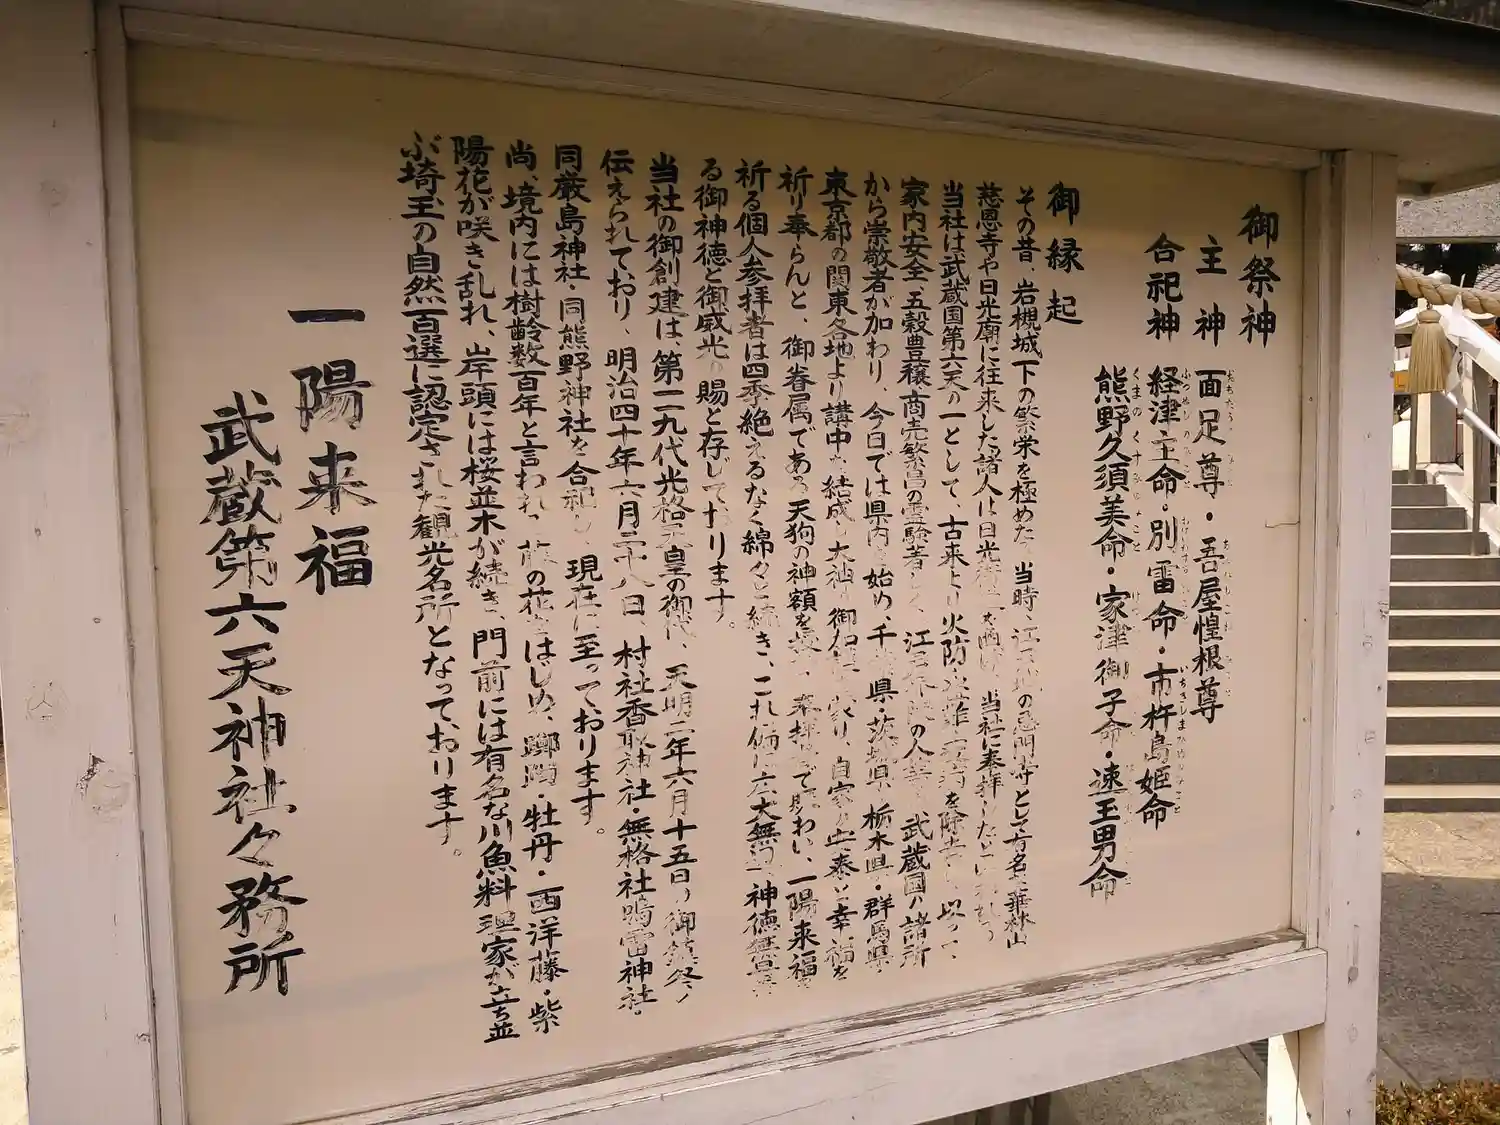 御祭神
主神　面足尊・吾屋惶根尊
合祀神　経津主命・別雷命・市杵島姫命
熊野久須美命・家津御子命・速玉男命
御縁起
その昔、岩槻城下の繁栄を極めた当時、江戸の鬼門寺として有名な華林山
慈恩寺や日光廟に往来した諸人は日光街道を 当社に奉拝したと
当社は武蔵国第六天の一として、古来より火防 を除去し 以って、
家内安全、五穀豊穣、商売繁昌の霊験著しく、江戸 の人 武蔵国の諸所
から崇敬者が加わり、今日では県内を始め、千葉県・茨城県・栃木県・群馬県・
東京都の関東各地より講中を結成し大神の御加護 家り、自家の安泰と幸福を
祈り奉らんと、御眷属である天狗の神額を 奉拝 で賑わい、一陽来福
祈る個人参拝者は四季絶えるなく綿々と続き、これ偏に広大無辺、神徳
る御神徳と御威光の賜と存じております。
当社の御創建は、第一一九代光格天皇の御代、天明二年六月十五日の御鎮祭ノ
伝えられており、明治四十年六月二十八日、村社香取神社・無格社鳴雷神社・
同厳島神社・同熊野神社を合祀し、現在に至っております。
尚、境内には樹齢数百年と言われ、藤の花をはじめ、躑躅・牡丹・西洋藤・紫
陽花が咲き乱れ、岸頭には桜並木が続き、門前には有名な川魚料理家が立ち並
ぶ埼玉の自然百選に認定された観光名所となっております。
一陽来福
武蔵第六天神社々務所